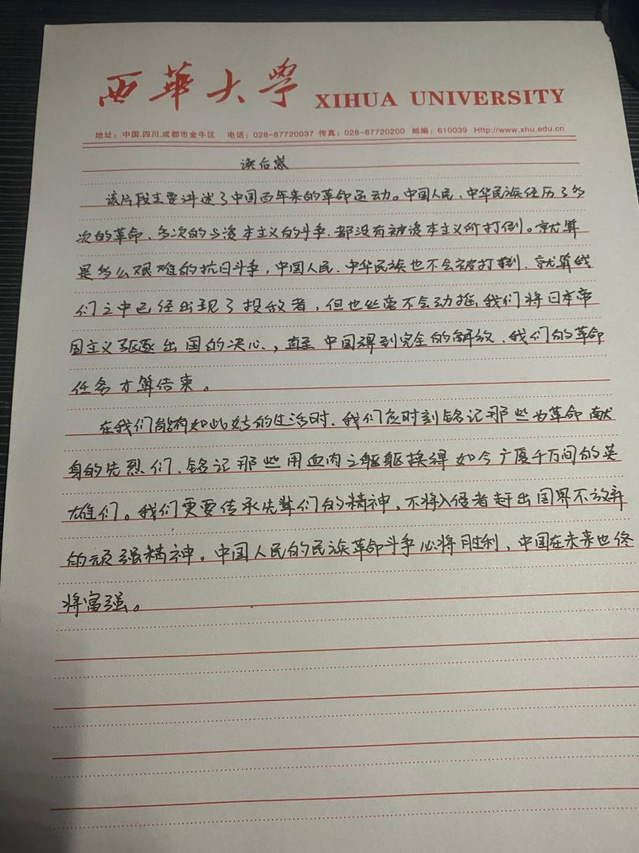 西華大學 XIHUA UNIVERSITY
地址：中国.四川.成都市金牛区 电话：028-87720037 传真：028-87720200 邮编：610039 Http://www.xhu.edu.cn
读后感
该片段主要讲述了中国百年来的革命运动。中国人民、中华民族经历了多
次的革命、多次的与资本主义的斗争，都没有被资本主义所打倒。就算
是多么艰难的抗日斗争，中国人民、中华民族也不会被打倒，就算我
们之中已经出现了投敌者，但也丝毫不会动摇我们将日本帝
国主义驱逐出国的决心，直至中国得到完全的解放，我们的革命
任务才算结束。
在我们能有如此好的生活时，我们应时刻铭记那些为革命献
身的先烈们，铭记那些用血肉之躯躯换得如今广厦千万间的英
雄们。我们更要传承先辈们的精神，不将入侵者赶出国界不放弃
的顽强精神。中国人民的民族革命斗争必将胜利，中国在未来也终
将富强。